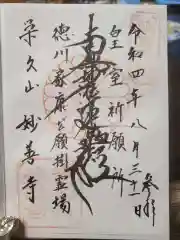 令和四年八月三十一日 参拝
皇室祈願所
南無妙法蓮華経
徳川家康公願掛霊場
栄久山 妙善寺